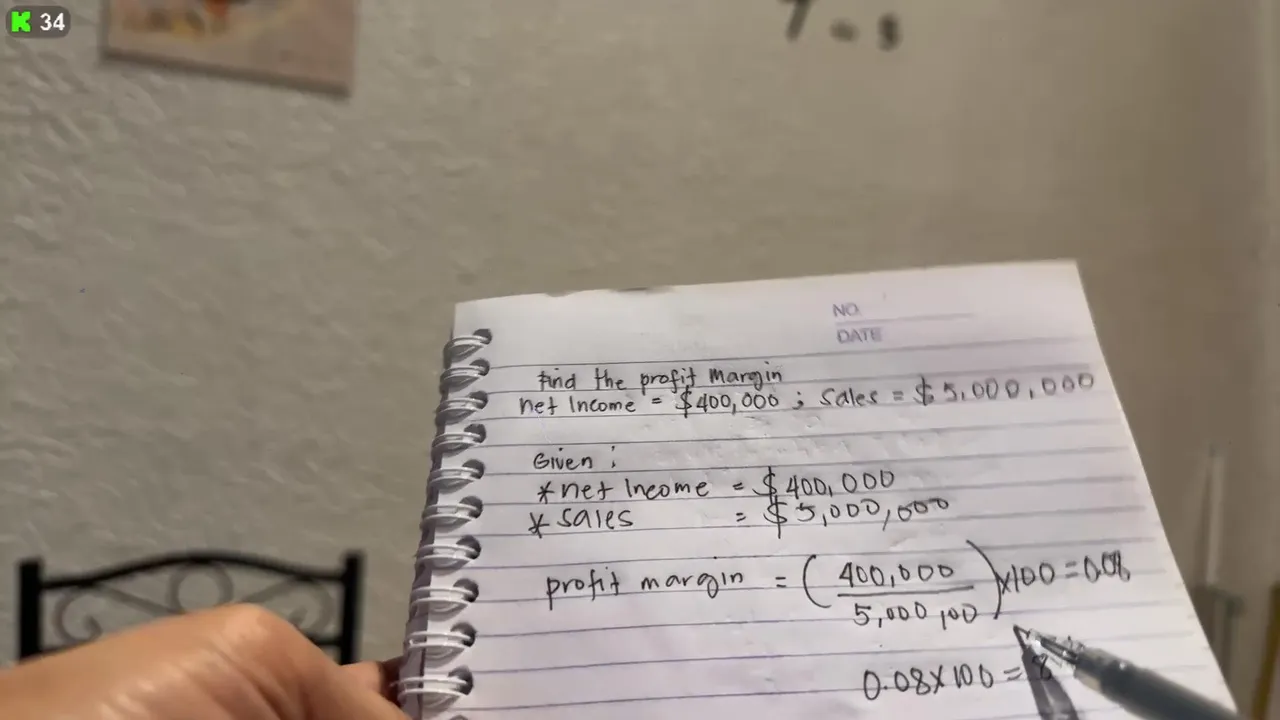 K 34
NO.
DATE
Find the profit margin
net Income = $400,000 ; Sales = $5,000,000
Given :
* net Income = $400,000
* Sales = $5,000,000
profit margin = (400,000 / 5,000,00) x100 = 0.08
0.08 x 100 = 8